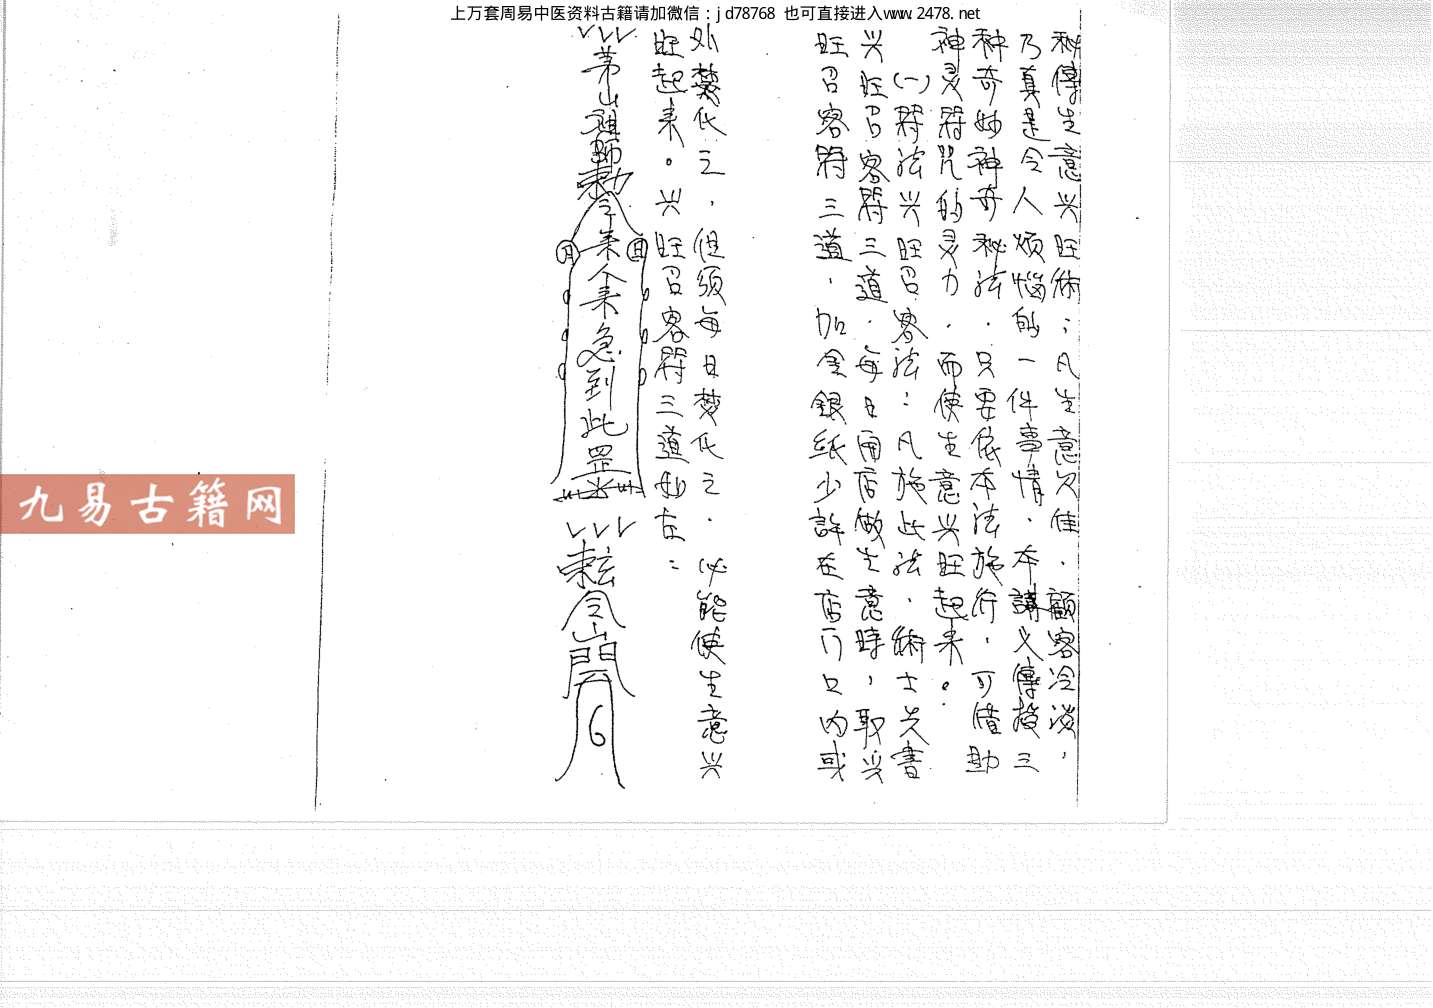 上万套周易中医资料古籍请加微信：jd78768 也可直接进入www.2478.net
秘傳生意兴旺術；凡生意欠佳．顧客冷淡，
乃真是令人烦惱的一件事情．本講义傳授三
种奇妙神奇秘法．只要依本法施行，可借助
神灵符咒的灵力．而使生意兴旺起来。
(一)符法兴旺召客法：凡施此法．術士先書
兴旺召客符三道．每日開店做生意時，取兴
旺召客符三道．加金銀紙少許在店门口内或
外焚化之．但須每日焚化之．必能使生意兴
旺起来。兴旺召客符三道如左：
茅山祖師勅令
日 月
来人来急到此罡
令山開
九易古籍网